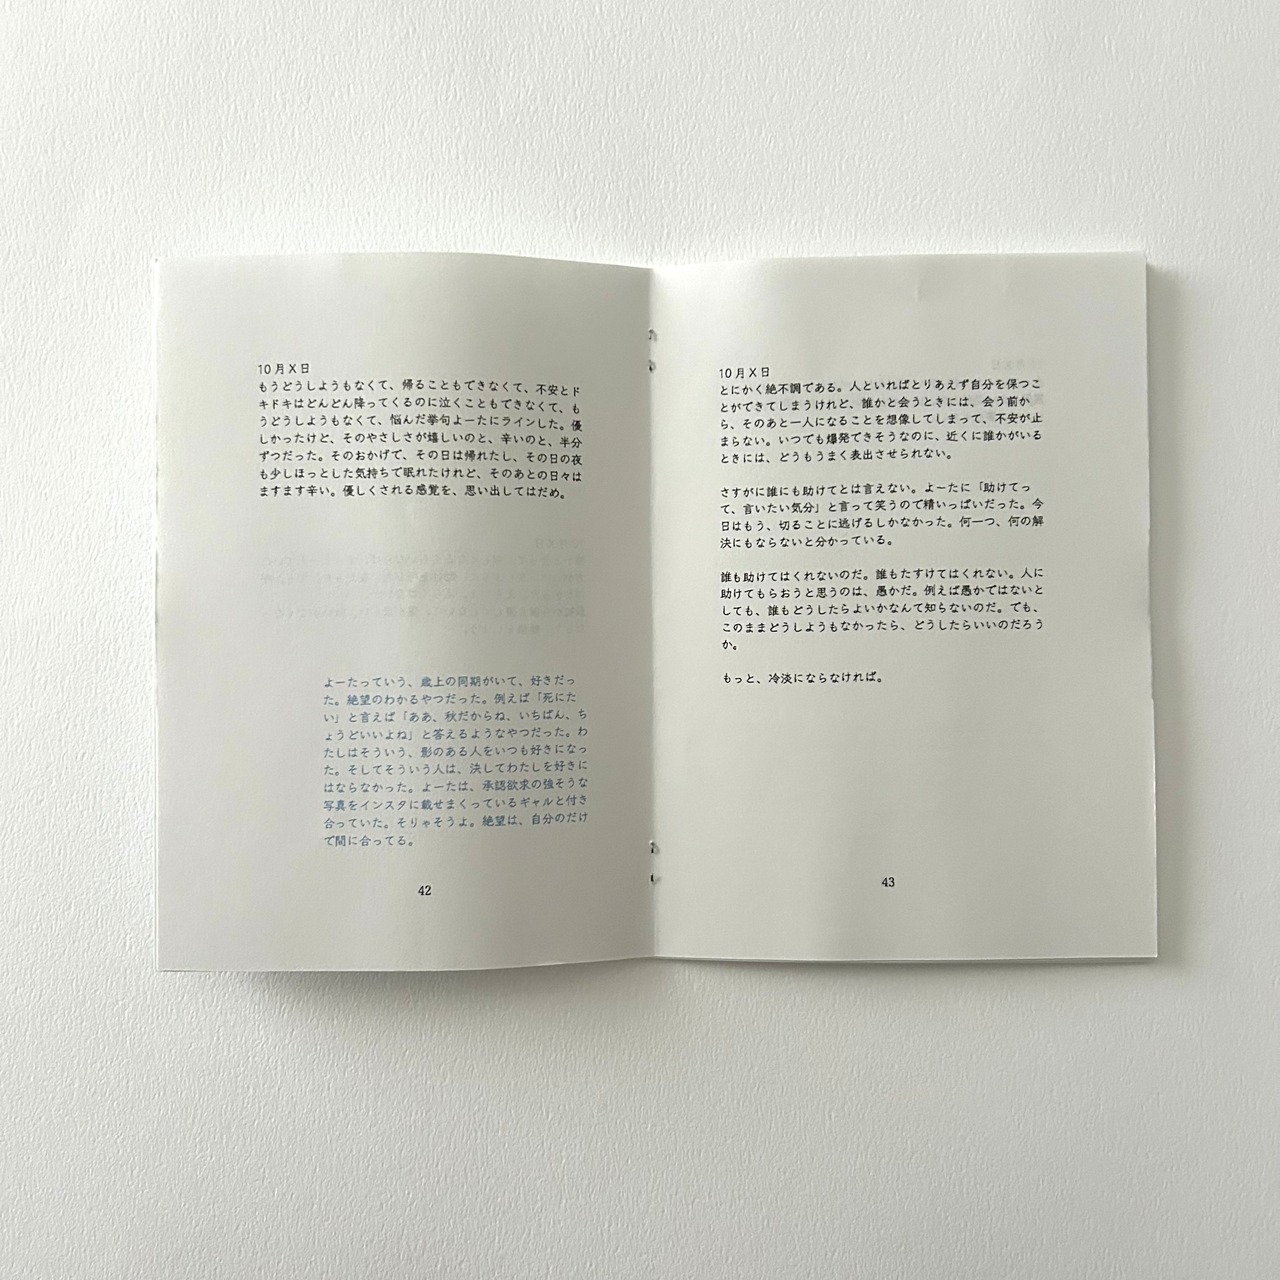 10月X日
もうどうしようもなくて、帰ることもできなくて、不安とド
キドキはどんどん降ってくるのに泣くこともできなくて、も
うどうしようもなくて、悩んだ挙句よーたにラインした。優
しかったけど、そのやさしさが嬉しいのと、辛いのと、半分
ずつだった。そのおかげで、その日は帰れたし、その日の夜
も少しほっとした気持ちで眠れたけれど、そのあとの日々は
ますます辛い。優しくされる感覚を、思い出してはだめ。
よーたっていう、歳上の同期がいて、好きだっ
た。絶望のわかるやつだった。例えば「死にた
い」と言えば「ああ、秋だからね、いちばん、ち
ょうどいいよね」と答えるようなやつだった。わ
たしはそういう、影のある人をいつも好きになっ
た。そしてそういう人は、決してわたしを好きに
はならなかった。よーたは、承認欲求の強そうな
写真をインスタに載せまくっているギャルと付き
合っていた。そりゃそうよ。絶望は、自分のだけ
で間に合ってる。
42
10月X日
とにかく絶不調である。人といればとりあえず自分を保つこ
とができてしまうけれど、誰かと会うときには、会う前か
ら、そのあと一人になることを想像してしまって、不安が止
まらない。いつでも爆発できそうなのに、近くに誰かがいる
ときには、どうもうまく表出させられない。
さすがに誰にも助けてとは言えない。よーたに「助けてっ
て、言いたい気分」と言って笑うので精いっぱいだった。今
日はもう、切ることに逃げるしかなかった。何一つ、何の解
決にもならないと分かっている。
誰も助けてはくれないのだ。誰もたすけてはくれない。人に
助けてもらおうと思うのは、愚かだ。例えば愚かではないと
しても、誰もどうしたらよいかなんて知らないのだ。でも、
このままどうしようもなかったら、どうしたらいいのだろう
か。
もっと、冷淡にならなければ。
43